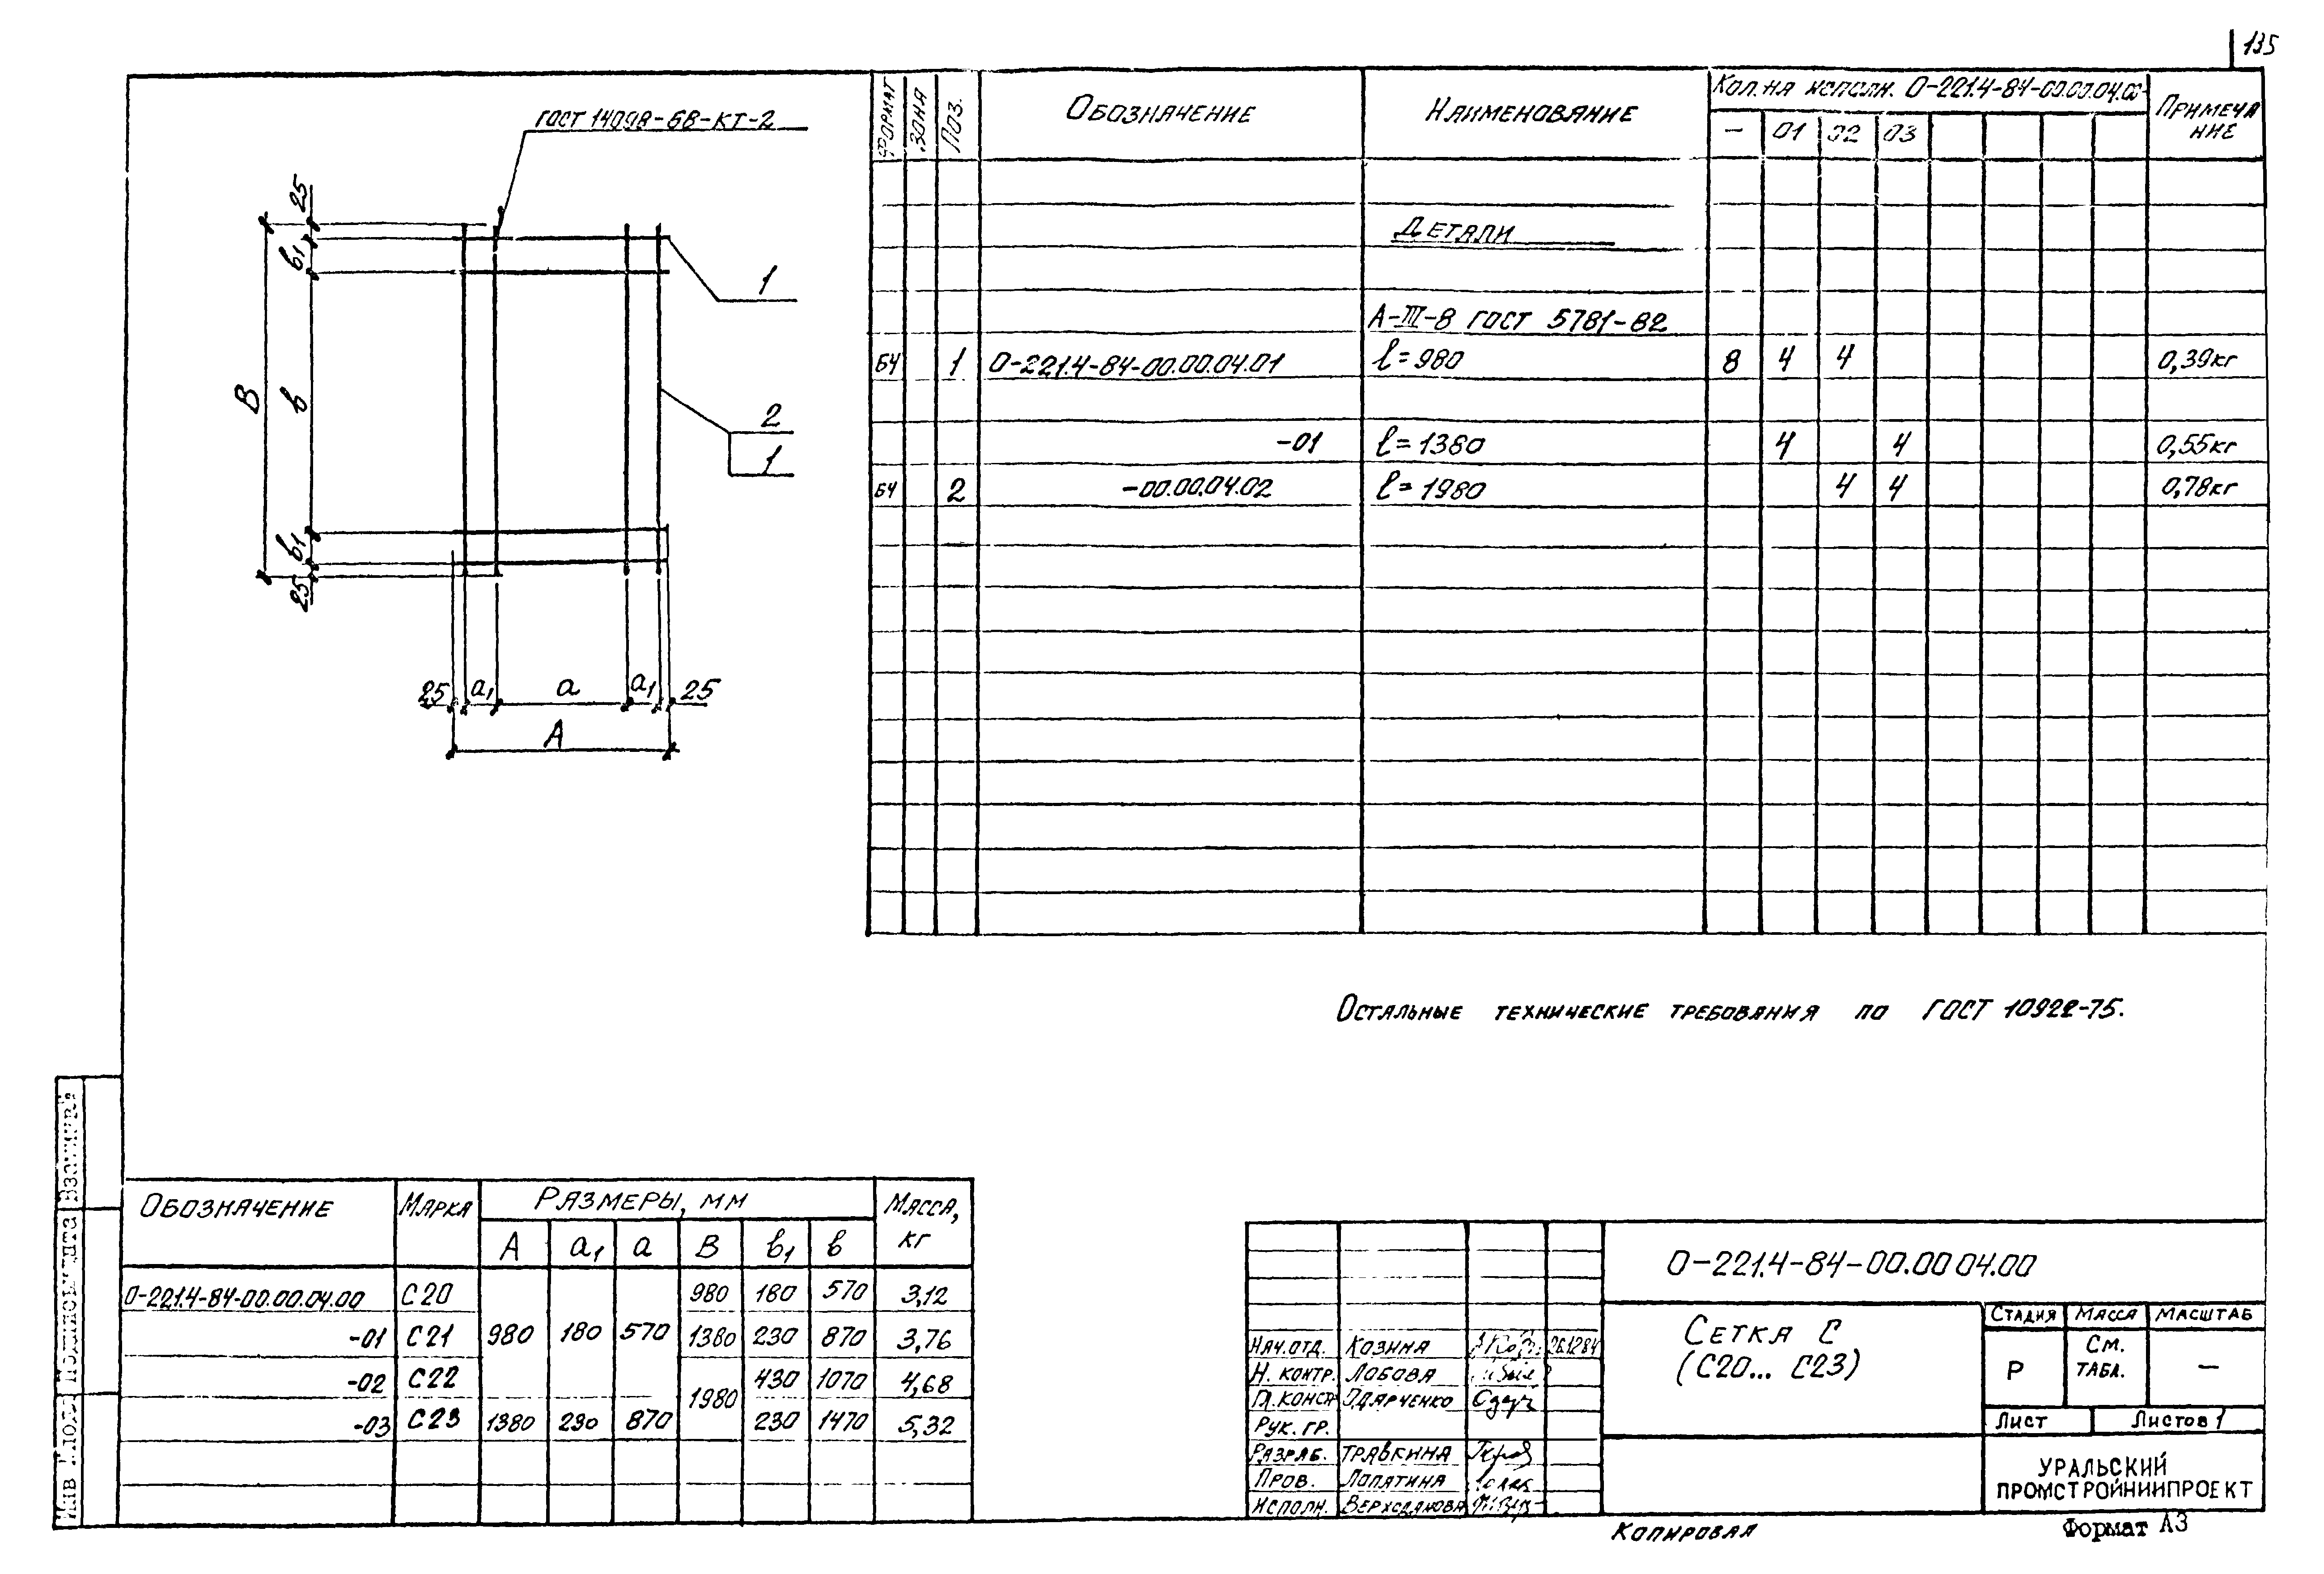 135
ГОСТ 14098-68-КТ-2
25
в1
в
В
в1
25
1
2
1
25 а1 а а1 25
А
ФОРМАТ ЗОНА ПОЗ. ОБОЗНАЧЕНИЕ НАИМЕНОВАНИЕ Кол. на исполн. 0-221.4-84-00.00.04.00- ПРИМЕЧА
НИЕ
— 01 02 03
ДЕТАЛИ
А-III-8 ГОСТ 5781-82
БЧ 1 0-221.4-84-00.00.04.01 ℓ=980 8 4 4 0,39кг
-01 ℓ=1380 4 4 0,55кг
БЧ 2 -00.00.04.02 ℓ=1980 4 4 0,78кг
ОСТАЛЬНЫЕ ТЕХНИЧЕСКИЕ ТРЕБОВАНИЯ ПО ГОСТ 10922-75.
ОБОЗНАЧЕНИЕ МАРКА РАЗМЕРЫ, ММ МАССА,
КГ
А а1 а В в1 в
0-221.4-84-00.00.04.00 С20 980 180 570 3,12
-01 С21 980 180 570 1380 230 870 3,76
-02 С22 1980 430 1070 4,68
-03 С23 1380 230 870 230 1470 5,32
0-221.4-84-00.00 04.00
СЕТКА С
(С20... С23)
СТАДИЯ МАССА МАСШТАБ
Р СМ.
ТАБЛ. —
ЛИСТ ЛИСТОВ 1
УРАЛЬСКИЙ
ПРОМСТРОЙНИИПРОЕКТ
НАЧ.ОТД. КОЗИНА 26.12.84
Н. КОНТР. ЛОБОВА
ГЛ.КОНСТ ОДАРЧЕНКО
РУК. ГР.
РАЗРАБ. ТРАВКИНА
ПРОВ. ЛОПАТИНА
ИСПОЛН.
КОПИРОВАЛ
Формат А3
Инв № подл Подпись и дата Взам инв №